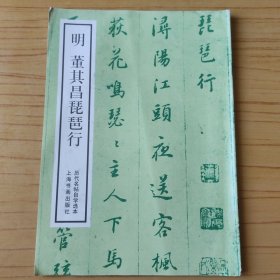 琵琶行
潯陽江頭夜送客楓
荻花鳴瑟瑟主人下馬
管絃
明 董其昌琵琶行
历代名帖自学选本
上海书画出版社